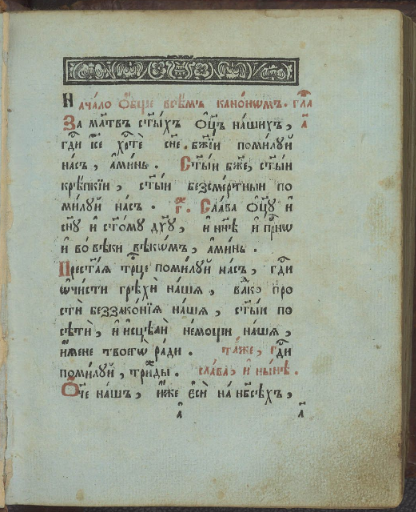 Нача́ло О҆́бщее всѣ̑мъ кано́нѡмъ. гла
За мл҃твъ ст҃ы́хъ ѻ҆ц҃ъ на́шихъ, а҃
гд҇и і҆с҃е хр҇тѐ сн҃е бж҃їи поми́лꙋй
на́съ, а҆ми́нь. Ст҃ы́й бж҃е, ст҃ы́й
крѣ́пкїй, ст҃ы́й безсме́ртный по
ми́лꙋй на́съ. г҃. Сла́ва ѻ҆ц҃ꙋ̀ и҆
сн҃ꙋ и҆ ст҃о́мꙋ дх҃ꙋ, и҆ нн҃ѣ и҆ пр҇нѡ
и҆ во вѣ́ки вѣко́мъ, а҆ми́нь.
Прест҃а́ѧ тр҇це поми́лꙋй на́съ, гд҇и
ѡ҆чи́сти грѣхѝ на́шѧ, влⷣко про
стѝ беззако́нїѧ на́шѧ, ст҃ы́й по
сѣтѝ, и҆ и҆сцѣлѝ не́мощи на́шѧ,
и҆́мене твоегѡ̀ ра́ди. та́же, гд҇и
поми́лꙋй, три́жды. сла́ва, и҆ ны́нѣ.
О҆́ч҃е на́шъ, и҆́же є҆сѝ на нб҃сѣ́хъ,
а҃ а҃